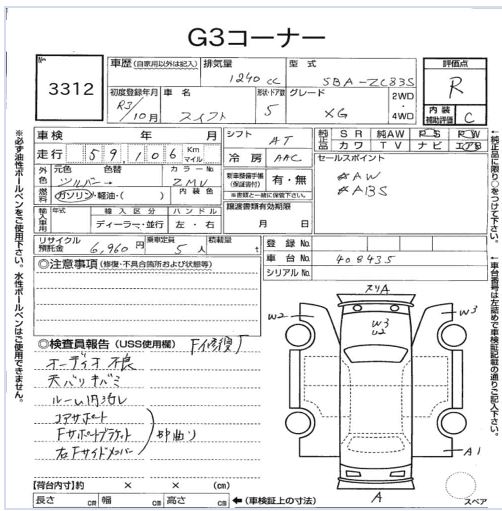 G3コーナー
No.
3312
車歴(自家用以外は記入)
排気量
1240cc
型式
5BA-ZC83S
評価点
R
初度登録年月
R3/10月
車名
スイフト
形状・ドア数
5
グレード
XG
2WD
・
4WD
内装
補助評価
C
車検 年 月
走行 59,106 Km マイル
シフト
AT
冷房
AAC
純正品
SR 純AW PS PW
カワ TV ナビ エアB
セールスポイント
☆AW
☆ABS
外色
元色 色替
シルバー→
カラーNo.
ZMV
燃料
ガソリン・軽油・( )
内装色
新車整備手帳
(保証書付)
有・無
※書類と一緒に保管下さい。
輸入車用
年式 輸入区分 ハンドル
ディーラー・並行 左・右
譲渡書類有効期限
月 日
リサイクル預託金
6,960円
乗車定員
5人
積載量
t
登録No.
車台No.
408435
シリアルNo.
◎注意事項(修復・不具合箇所および状態等)
◎検査員報告(USS使用欄)
F修復歴
オーディオ不良
天バリキバミ
ルーム内汚レ
コアサポート
Fサポートブラケット
右Fサイドメンバー
部曲り
スリA
W2
W3
W3
U2
A1
A
スペア
【荷台内寸】約 × × (cm)
長さ cm 幅 cm 高さ cm ←(車検証上の寸法)
※必ず油性ボールペンをご使用下さい。水性ボールペンはご使用できません。
←純正品に限り○をつけて下さい。
←車台番号は左詰めで車検証記載の通りご記入下さい。